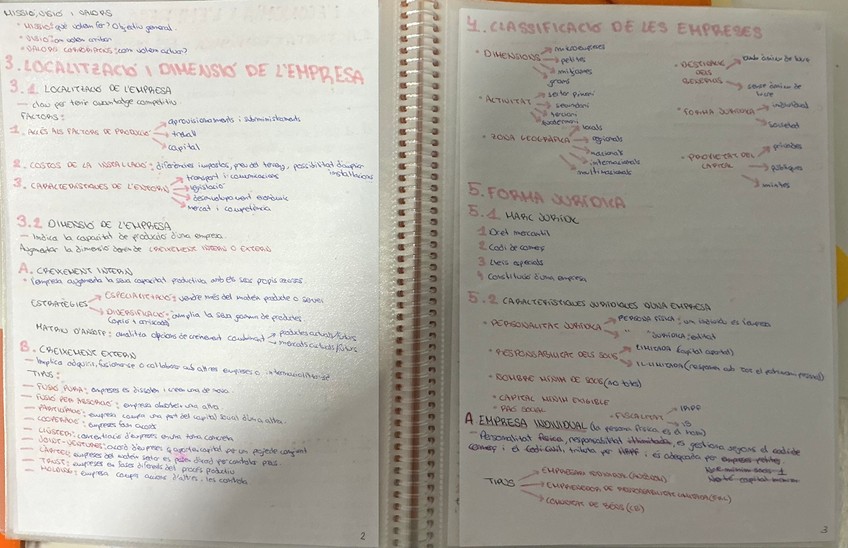 MISSIÓ, VISIÓ I VALORS
• MISSIÓ: què volem fer? Objectiu general.
• VISIÓ: on volem arribar
• VALORS CORPORATIUS: com volem actuar?
3. LOCALITZACIÓ I DIMENSIÓ DE L'EMPRESA
3.1. LOCALITZACIÓ DE L'EMPRESA
— clau per tenir avantatge competitiu.
FACTORS:
1. ACCÉS ALS FACTORS DE PRODUCCIÓ
aprovisionaments i subministraments
treball
capital
2. COSTOS DE LA INSTAL·LACIÓ: diferències impostos, preu del terreny, possibilitat d'ampliar
instal·lacions
3. CARACTERÍSTIQUES DE L'ENTORN
transport i comunicacions
legislació
desenvolupament econòmic
mercat i competència
3.2 DIMENSIÓ DE L'EMPRESA
— Indica la capacitat de producció d'una empresa
Augmentar la dimensió depèn de CREIXEMENT INTERN O EXTERN
A. CREIXEMENT INTERN
• l'empresa augmenta la seva capacitat productiva amb els seus propis recursos
ESTRATÈGIES
ESPECIALITZACIÓ: vendre més del mateix producte o servei
DIVERSIFICACIÓ: amplia la seva gamma de productes.
MATRIU D'ANSOFF: analitza opcions de creixement combinant
productes actuals/futurs
mercats actuals/futurs
B. CREIXEMENT EXTERN
— Implica adquirir, fusionar-se o col·laborar amb altres empreses o internacionalitzar-se
TIPUS:
— FUSIÓ PURA: empreses es dissolen i creen una de nova.
— FUSIÓ PER ABSORCIÓ: empresa absorbeix una altra.
— PARTICIPACIÓ: empresa compra una part del capital social d'una altra.
— COOPERACIÓ: empreses fan acords
— CLÚSTER: concentració d'empreses en una zona concreta
— JOINT-VENTURES: acord d'empreses q aporten capital per un projecte conjunt
— CÀRTEL: empreses del mateix sector es posen d'acord per controlar preus.
— TRUST: empreses en fases diferents del procés productiu
— HOLDING: empresa compra accions d'altres i les controla
2
4. CLASSIFICACIÓ DE LES EMPRESES
• DIMENSIONS
microempreses
petites
mitjanes
grans
• ACTIVITAT
sector primari
secundari
terciari
quaternari
• ZONA GEOGRÀFICA
locals
regionals
nacionals
internacionals
multinacionals
amb ànim de lucre
sense ànim de
lucre
• FORMA JURÍDICA
individual
societat
• PROPIETAT DEL
CAPITAL
privades
públiques
mixtes
5. FORMA JURÍDICA
5.1 MARC JURÍDIC
1 Dret mercantil
2 Codi de comerç
3 Lleis especials
4 Constitució d'una empresa
5.2 CARACTERÍSTIQUES JURÍDIQUES D'UNA EMPRESA
• PERSONALITAT JURÍDICA
PERSONA FÍSICA: un individu és l'empresa
" JURÍDICA: entitat
• RESPONSABILITAT DELS SOCIS
LIMITADA (capital aportat)
IL·LIMITADA (respon amb tot el patrimoni personal)
• NOMBRE MÍNIM DE SOCIS (no tots)
• CAPITAL MÍNIM EXIGIBLE
• RAÓ SOCIAL
• FISCALITAT
IRPF
IS
A EMPRESA INDIVIDUAL (la persona física és el màxim)
— Personalitat física, responsabilitat il·limitada, es gestiona segons el codi de
comerç i el Codi Civil, tributa per IRPF i és adequada per empreses petites.
TIPUS
EMPRESARI INDIVIDUAL (AUTÒNOM)
EMPRENEDOR DE RESPONSABILITAT LIMITADA (ERL)
COMUNITAT DE BÉNS (CB)
3